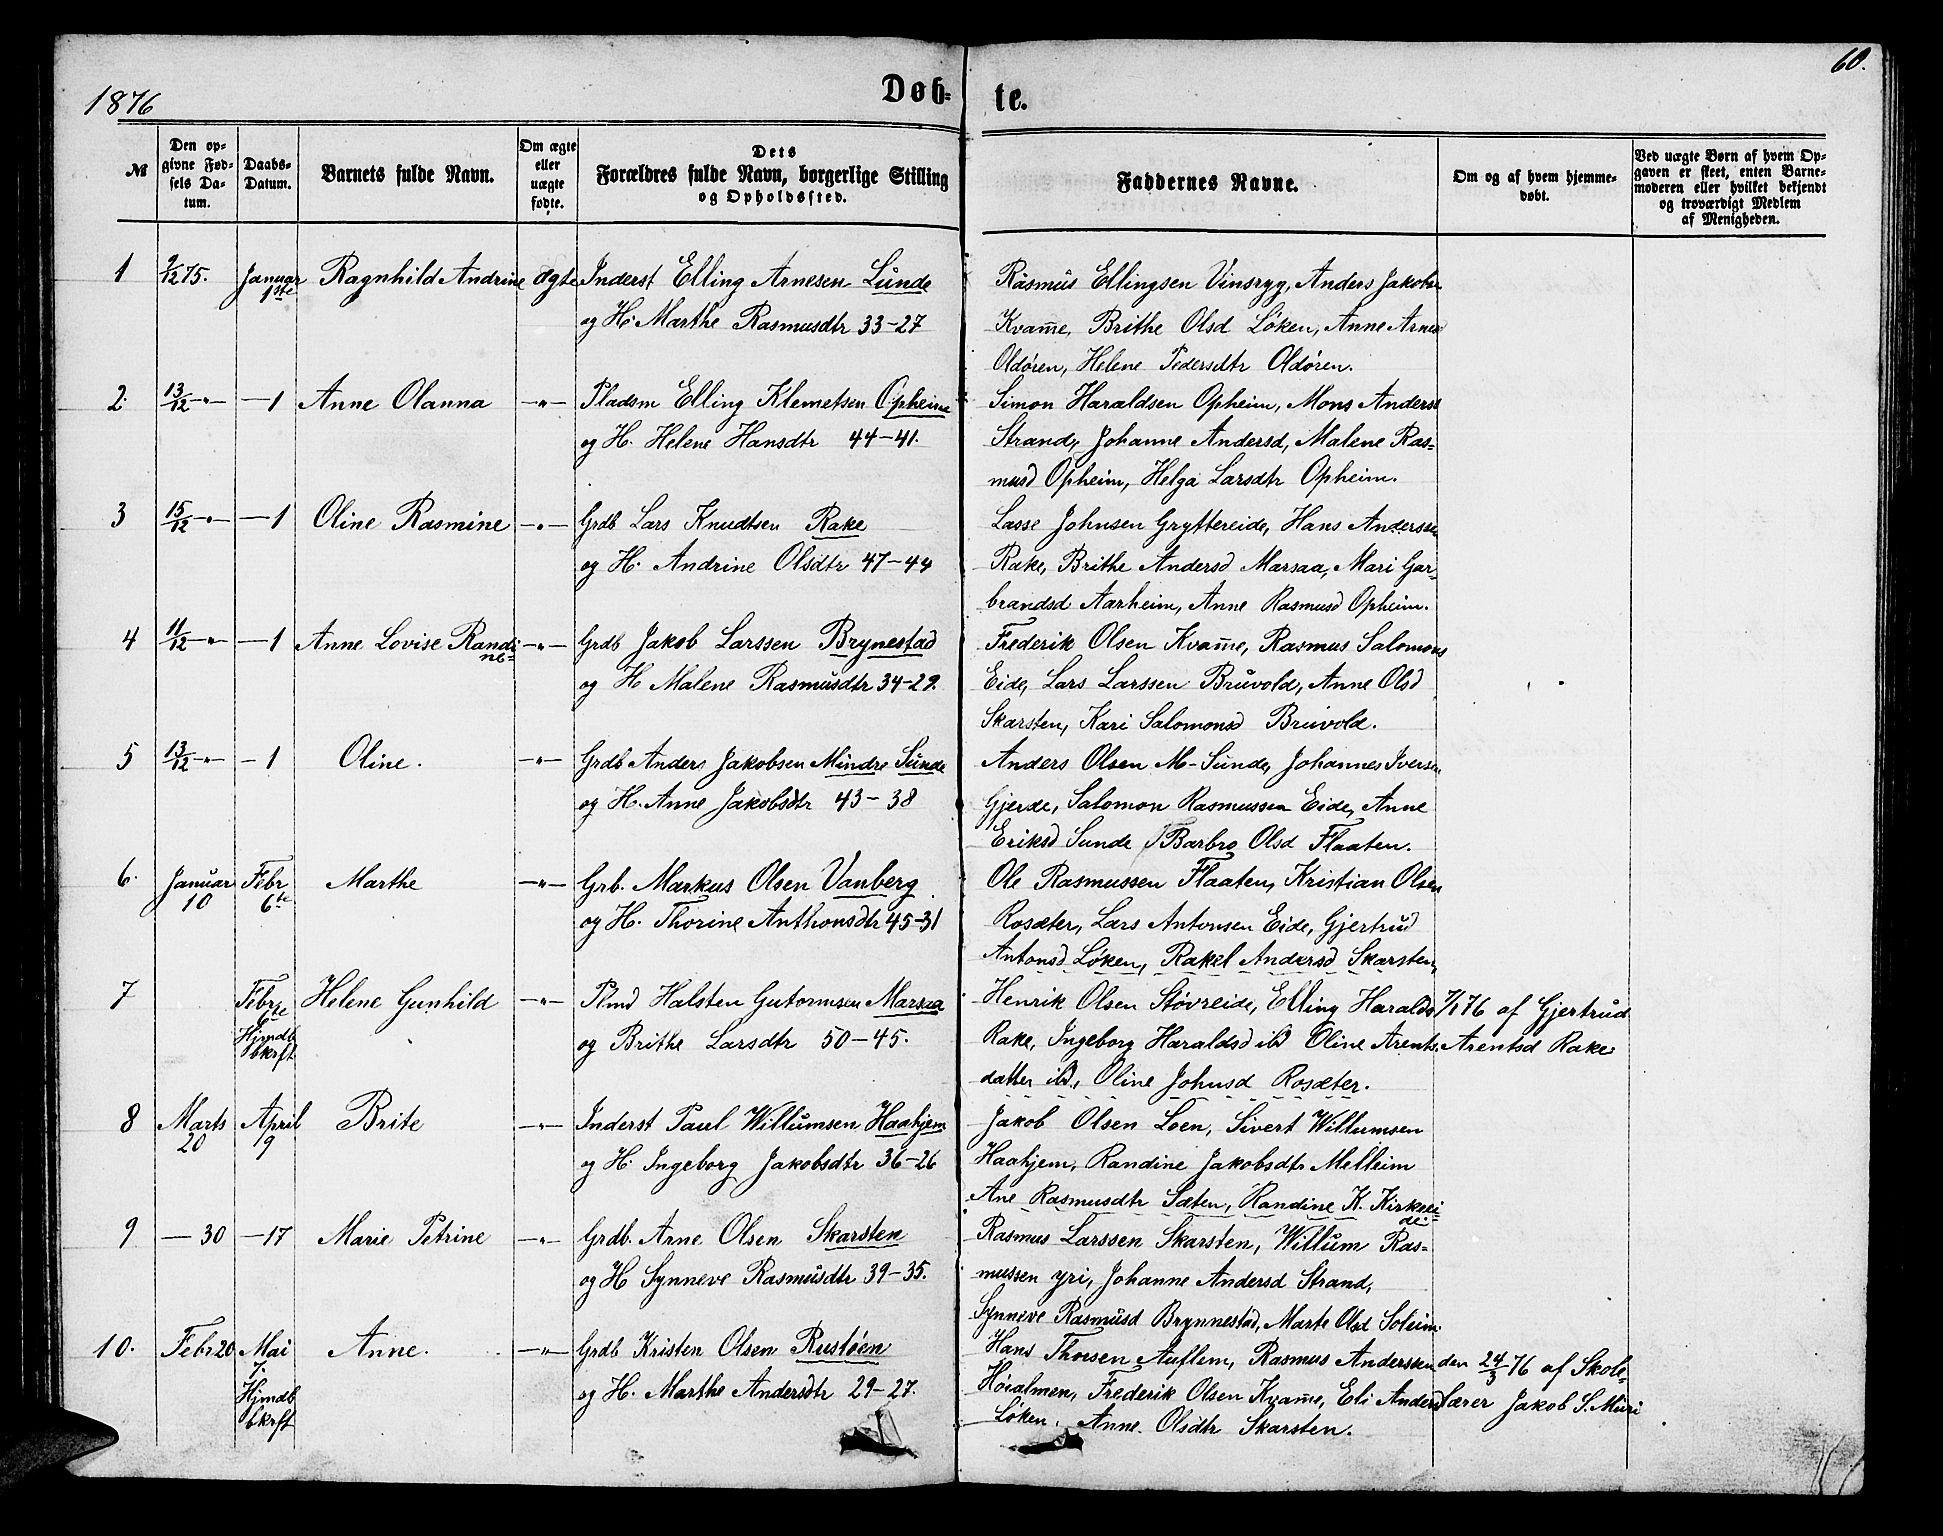 1876
Døb-
te.
60.
№
Den op-
givne Fød-
sels Da-
tum.
Daabs-
Datum.
Barnets fulde Navn.
Om ægte
eller
uægte
fødte.
Dets
Forældres fulde Navn, borgerlige Stilling
og Opholdssted.
Faddernes Navne.
Om og af hvem hjemme-
døbt.
Ved uægte Børn af hvem Op-
gaven er skeet, enten Barne-
moderen eller hvilket bekjendt
og troværdigt Medlem
af Menigheden.
1 9/12 75. Januar 1ste Ragnhild Andrine ægte Inderst Elling Arnesen Lunde
og H. Marthe Rasmusdtr 33-27
Rasmus Ellingsen Vinsryg, Anders Jakobsn
Kvam̄e, Brithe Olsd Løken, Anne Arnesd
Oldøren, Helene Pedersdtr Oldøren.
2. 13/12 -"- -1 Anne Olanna -"- Pladsm Elling Klemetsen Opheim
og H. Helene Hansdtr 44-41.
Simon Haraldsen Opheim, Mons Anders
Strand, Johanne Andersd, Malene Ras-
musd Opheim, Helga Larsdtr Opheim.
3 15/12 -"- -1 Oline Rasmine -"- Grdb Lars Knudtsen Rake
og H. Andrine Olsdtr 47-44
Lasse Johnsen Gryttereide, Hans Anderssen
Rake, Brithe Andersd Marsaa, Mari Gar-
brandsd Aarheim, Anne Rasmusd Opheim.
4 11/12 -"- -1 Anne Lovise Randi
ne= -"- Grdb Jakob Larssen Brynestad
og H Malene Rasmusdtr 34-29.
Frederik Olsen Kvam̄e, Rasmus Salomons
Eide, Lars Larssen Bruvold, Anne Olsd
Skarsten, Kari Salomonsd Bruvold.
5 13/12 -"- -1 Oline. -"- Grdb Anders Jakobsen Mindre Sunde
og H. Anne Jakobsdtr 43-38
Anders Olsen M-Sunde, Johannes Iversen
Gjerde, Salomon Rasmussen Eide, Anne
Eriksd Sunde, Barbro Olsd Flaaten.
6. Januar 10 Febr 6te Marthe -"- Grb. Markus Olsen Vanberg
og H. Thorine Anthonsdtr 45-31
Ole Rasmussen Flaaten, Kristian Olsen
Rosæter, Lars Antonsen Eide, Gjertrud
Antonsd Løken, Rakel Andersd Skarsten,
7 Febr 6te
Hjmdb
bkrft Helene Gunhild -"- Plmd Halsten Gutormsen Marsaa
og Brithe Larsdtr 50-45.
Henrik Olsen Støvreide, Elling Haralds
Rake, Ingeborg Haraldsd ibd Oline Arents-
datter ibd, Oline Johnsd Rosæter.
7/1 76 af Gjertrud
Arentsd Rake
8 Marts 20 April 9 Brite -"- Inderst Paul Willumsen Haahjem
og H. Ingeborg Jakobsdtr 36-26
Jakob Olsen Loen, Sivert Willumsen
Haahjem, Randine Jakobsdtr Melheim
Ane Rasmusdtr Sæten, Randine K. Kirkei-
de.
9 -30 -17 Marie Petrine -"- Grdb. Arne Olsen Skarsten
og H Synneve Rasmusdtr 39-35.
Rasmus Larssen Skarsten, Willum Ras-
mussen yri, Johanne Andersd Strand,
Synneve Rasmusd Brynnestad, Marte Olsd Soleim.
10. Febr 20 Mai 7.
Hjmdb
bkrft Anne. -"- Grdb Kristen Olsen Rustøen
og H. Marthe Andersdtr 29-27.
Hans Thorsen Auflem, Rasmus Anderssen
Høialmen, Frederik Olsen Kvam̄e, Eli Andersd
Løken. Anne. Olsdtr Skarsten.
den 24/3 76 af Skole-
lærer Jakob S. Muri